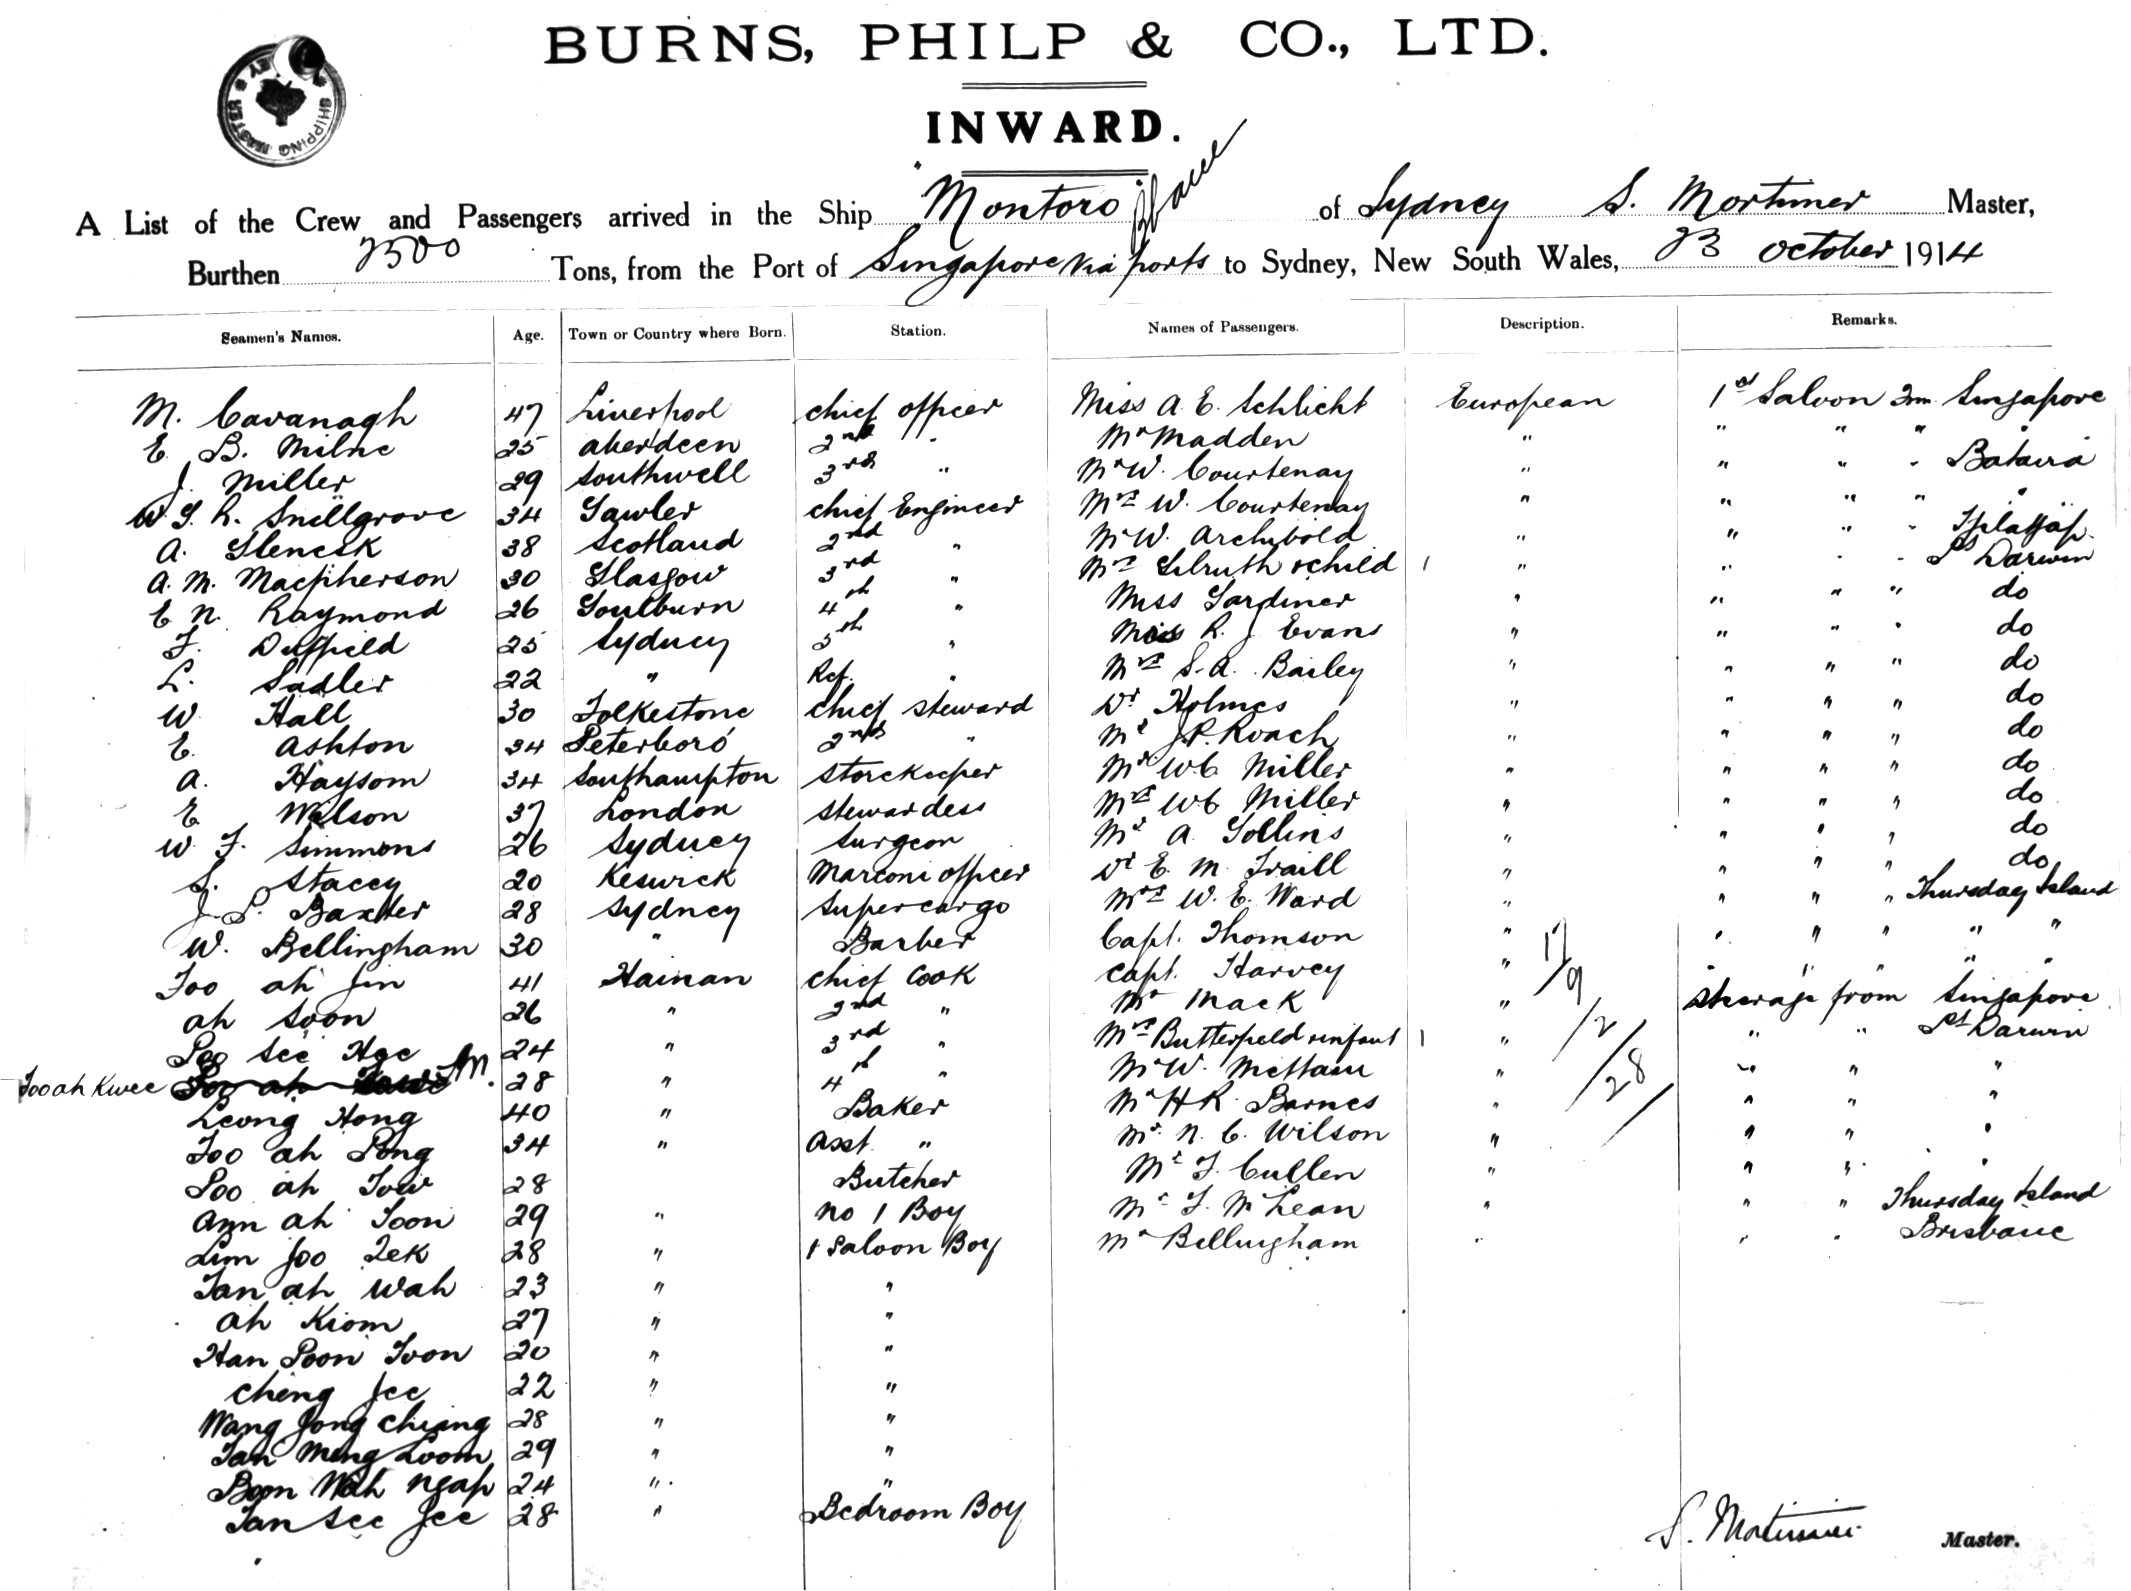 BURNS, PHILP & CO., LTD.
INWARD.
SHIPPING MASTER
A List of the Crew and Passengers arrived in the Ship "Montoro of Sydney S. Mortimer Master,
Burthen 2500 Tons, from the Port of Singapore via ports to Sydney, New South Wales, 23 October 1914
Seamen's Names. Age. Town or Country where Born. Station. Names of Passengers. Description. Remarks.
M. Cavanagh 47 Liverpool chief officer Miss A. E. Schlicht European 1st Saloon Singapore
E. B. Milne 25 aberdeen 2nd " Mr Madden " " " " "
J. Miller 29 Southwell 3rd " Mr W. Courtenay " " " " Batavia
W S. R. Snellgrove 34 Gawler chief Engineer Mrs W. Courtenay " " " " "
A. Glenesk 38 Scotland 2nd " Mr W. Archibold " " " "
A. M. Macpherson 30 Glasgow 3rd " Mrs Gilruth & child 1 " " " " Pt Darwin
E N. Raymond 26 Goulburn 4th " Miss Gardiner " " " " do
F. Duffield 25 Sydney 5th " R. J. Evans " " " " do
L. Sadler 22 " Ref. " Mrs S. A. Bailey " " " " do
W Hall 30 Folkestone chief steward Dr Holmes " " " " do
E. Ashton 34 Peterboro 2nd " Mr J.P. Roach " " " " do
A. Haysom 34 Southampton storekeeper Mr W C Miller " " " " do
E Wilson 37 London stewardess Mrs W C Miller " " " " do
W F. Simmons 26 Sydney surgeon Mr A Gollins " " " " do
S. Stacey 20 Keswick Marconi officer Dr E. M. Traill " " " " do
J. S. Baxter 28 Sydney supercargo Mrs W. E. Ward " " " " Thursday Island
W. Bellingham 30 " Barber Capt. Thomson " " " " " "
Foo ah Jin 41 Hainan chief cook Capt. Harvey " " " " " "
ah Soon 26 " 2nd " Mr Mack " steerage from Singapore
24 " 3rd " Mrs Butterfield & infant 1 " " " Pt Darwin
Foo ah Kwee 28 " 4th " Mr W. " " " "
Leong Hong 40 " Baker Mr H R Barnes " " " "
Foo ah Pong 34 " Asst " Mr N. C. Wilson " " " "
Foo ah 28 Butcher Mr F. Cullen " " " "
ah Toon 29 " No 1 Boy Mr F. McLean " " " Thursday Island
Lim Joo Tek 28 " 1 Saloon Boy Mr Bellingham " " " Brisbane
Tan ah Wah 23 " "
ah Kiom 27 " "
Han Poon Toon 20 " "
Cheng Jee 22 " "
Wang Jong Chiang 28 " "
Tan Meng Loom 29 " "
Boon Wah Ngap 24 " "
Tan See Jee 28 " Bedroom Boy
17/9
/2
/28
S. Mortimer Master.